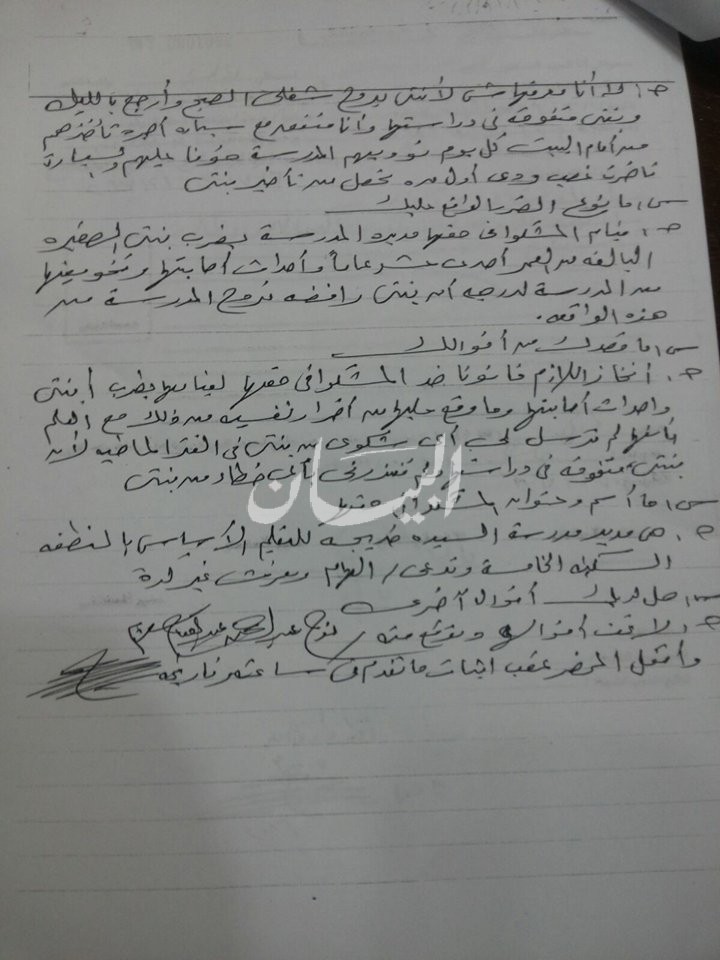 ج: لا أنا معرفهاش لأننى بروح شغلى الصبح وأرجع بالليل
وبنتى متفوقة فى دراستها وأنا متفق مع سيارة أجره تأخذهم
من أمام البيت كل يوم توديهم المدرسة خوفا عليهم والسيارة
تأخرت غصب ودى أول مره تحصل من تأخير بنتى
س: ما نوع الضرر الواقع عليك
ج: قيام المشكو فى حقها مديره المدرسة بضرب بنتى الصغيره
البالغه من العمر أحدى عشر عاماً وأحداث أصابتها وتخويفها
من المدرسة لدرجه أن بنتى رافضه تروح المدرسة من
هذه الواقعه.
س: ما قصدك من أقوالك
ج: أتخاذ اللازم قانونا ضد المشكو فى حقها لقيامها بضرب أبنتى
واحداث أصابتها وما وقع عليها من أضرار نفسيه من ذلك مع العلم
بأنها لم ترسل لى أى شكوى من بنتى فى الفترا الماضيه لأن
بنتى متفوقه فى دراستها ولم تنذرنى بأى خطاء من بنتى
س: ما أسم وعنوان المشكو فى حقها
ج: هى مدير مدرسة السيده خديجه للتعليم الأساسى بالمنطقه
السكنيه الخامسة وتدعى / الهام ومعرفش غير كدة
س: هل لديك أقوال آخرى
ج: لا وقفت أقواله وتوقع منه /
وأقفل المحضر عقب اثبات ما تقدم فى ساعته وتاريخه
البيان